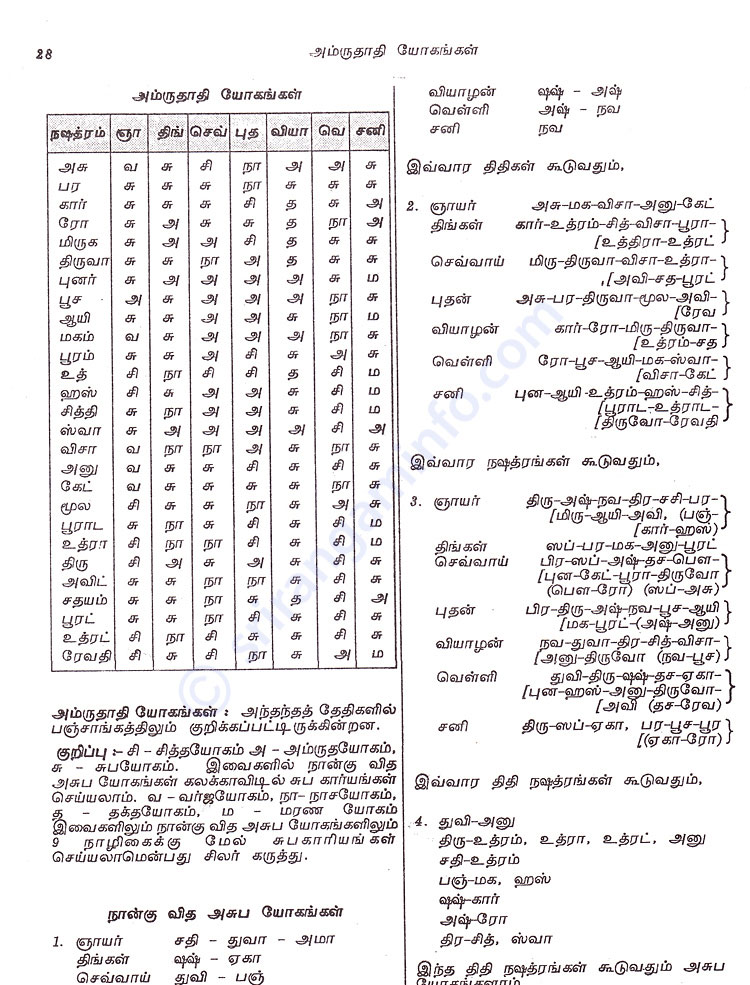 28
அம்ருதாதி யோகங்கள்
அம்ருதாதி யோகங்கள்
நஷத்ரம் ஞா திங் செவ் புத வியா வெ சனி
அசு வ சு சி நா அ அ சு
பர சு சு சு நா சு சு சு
கார் சு சு சு சி த சு அ
ரோ சு அ சு சு த நா அ
மிருக சு அ அ சி த சு சு
திருவா சு சு நா அ த சு சு
புனர் சு அ அ அ அ சு ம
பூச அ சு அ அ அ நா சு
ஆயி சு சு அ அ சு நா ம
மகம் வ சு அ அ அ நா சு
பூரம் சு சு அ சி சு அ சு
உத் சி நா சி சி த சி ம
ஹஸ் சி சு அ அ சு சி ம
சித்தி சு நா அ அ சு சி ம
ஸ்வா சு அ அ அ அ சி அ
விசா வ நா நா அ சு நா சு
அனு வ சு சு சி சு சி சு
கேட் வ சு சு சு சு நா சு
மூல சி சு சு நா சு அ சு
பூராட சு நா சு சி சு சி ம
உத்ரா சி நா நா சி சு சி ம
திரு சி அ சு அ சு சி சு
அவிட் சி சு நா நா சு சி சு
சதயம் சு சு நா சு த சி அ
பூரட் சு சு நா சி சு சி சு
உத்ரட் சி நா சி சு சு சி சு
ரேவதி சி சு சி நா சு அ ம
அம்ருதாதி யோகங்கள் : அந்தந்தத் தேதிகளில்
பஞ்சாங்கத்திலும் குறிக்கப்பட்டிருக்கின்றன.
குறிப்பு :– சி – சித்தயோகம் அ – அம்ருதயோகம்,
சு – சுபயோகம். இவைகளில் நான்கு வித
அசுப யோகங்கள் கலக்காவிடில் சுப கார்யங்கள்
செய்யலாம். வ – வர்ஜயோகம், நா– நாசயோகம்,
த – தக்தயோகம், ம – மரண யோகம்
இவைகளிலும் நான்கு வித அசுப யோகங்களிலும்
9 நாழிகைக்கு மேல் சுபகாரியங்கள்
செய்யலாமென்பது சிலர் கருத்து.
நான்கு வித அசுப யோகங்கள்
1. ஞாயர் சதி – துவா – அமா
திங்கள் ஷஷ் – ஏகா
செவ்வாய் துவி – பஞ்
வியாழன் ஷஷ் – அஷ்
வெள்ளி அஷ் – நவ
சனி நவ
இவ்வார திதிகள் கூடுவதும்,
2. ஞாயர் அசு–மக–விசா–அனு–கேட்
திங்கள் கார்–உத்ரம்–சித்–விசா–பூரா–}
[உத்திரா–உத்ரட்
செவ்வாய் மிரு–திருவா–விசா–உத்ரா–}
,[அவி–சத–பூரட்
புதன் அசு–பர–திருவா–மூல–அவி–}
[ரேவ
வியாழன் கார்–ரோ–மிரு–திருவா–}
[உத்ரம்–சத
வெள்ளி ரோ–பூச–ஆயி–மக–ஸ்வா–}
[விசா–கேட்
சனி புன–ஆயி–உத்ரம்–ஹஸ்–சித்–}
[பூராட–உத்ராட–
[திருவோ–ரேவதி
இவ்வார நஷத்ரங்கள் கூடுவதும்,
3. ஞாயர் திரு–அஷ்–நவ–திர–சசி–பர–}
[மிரு–ஆயி–அவி, (பஞ்–
[கார்–ஹஸ்)
திங்கள் ஸப்–பர–மக–அனு–பூரட்
செவ்வாய் பிர–ஸப்–அஷ்–தச–பௌ–}
[புன–கேட்–பூரா–திருவோ
(பௌ–ரோ) (ஸப்–அசு)
புதன் பிர–திரு–அஷ்–நவ–பூச–ஆயி}
[மக–பூரட்–(அஷ்–அனு)
வியாழன் நவ–துவா–திர–சித்–விசா–}
[அனு–திருவோ (நவ–பூச)
வெள்ளி துவி–திரு–ஷஷ்–தச–ஏகா–}
[புன–ஹஸ்–அனு–திருவோ–
[அவி (தச–ரேவ)
சனி திரு–ஸப்–ஏகா, பர–பூச–பூர}
[(ஏகா–ரோ)
இவ்வார திதி நஷத்ரங்கள் கூடுவதும்,
4. துவி–அனு
திரு–உத்ரம், உத்ரா, உத்ரட், அனு
சதி–உத்ரம்
பஞ்–மக, ஹஸ்
ஷஷ்–கார்
அஷ்–ரோ
திர–சித், ஸ்வா
இந்த திதி நஷத்ரங்கள் கூடுவதும் அசுப
யோகங்களாம்
© srirangaminfo.com